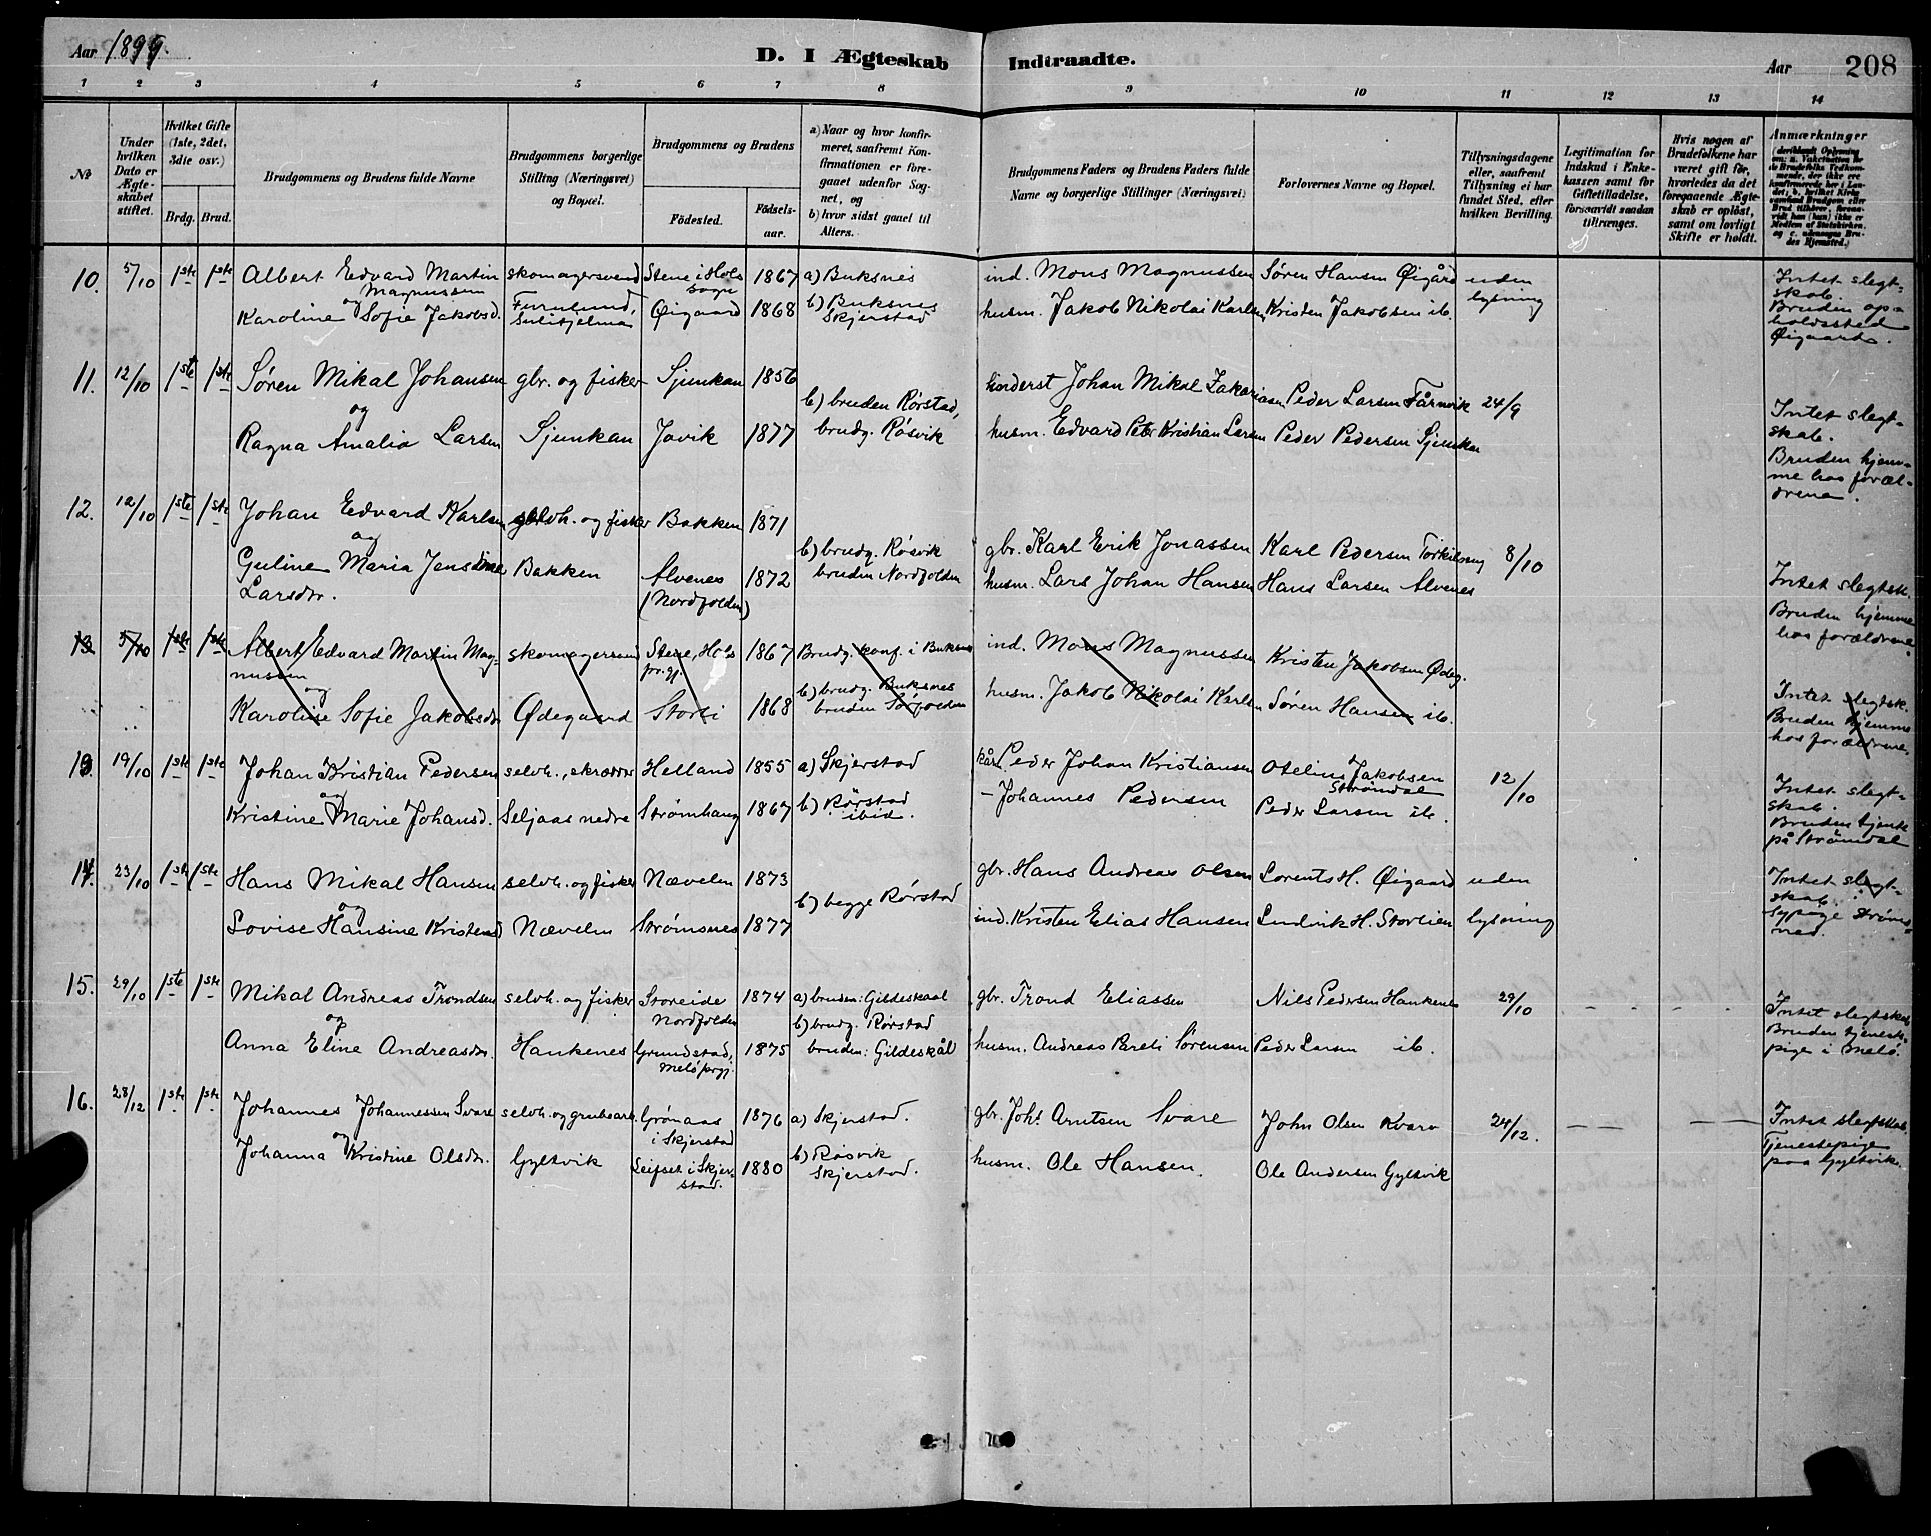 Aar 1899.
D. I Ægteskab Indtraadte.
Aar 208
1 2 3 4 5 6 7 8 9 10 11 12 13 14
No
Under hvilken Dato er Ægteskabet stiftet.
Hvilket Gifte (1ste, 2det, 3die osv.)
Brdg. Brud.
Brudgommens og Brudens fulde Navne
Brudgommens borgerlige Stilling (Næringsvei) og Bopæl.
Brudgommens og Brudens
Fødested.
Fødselsaar.
a) Naar og hvor konfirmeret, saafremt Konfirmationen er foregaaet udenfor Sognet, og
b) hvor sidst gaaet til Alters.
Brudgommens Faders og Brudens Faders fulde Navne og borgerlige Stillinger (Næringsvei)
Forlovernes Navne og Bopæl.
Tillysningsdagene eller, saafremt Tillysning ei har fundet Sted, efter hvilken Bevilling.
Legitimation for Indskud i Enkekassen samt for Giftetilladelse, forsaavidt saadan tiltrænges.
Hvis nogen af Brudefolkene har været gift før, hvorledes da det foregaaende Ægteskab er opløst, samt om lovligt Skifte er holdt.
Anmærkninger
10. 5/10 1ste 1ste Albert Edvard Martin skomagersvend Stene i Hols 1867 a) Buksnes ind. Mons Magnussen Søren Hansen Øigård uden Intet slegt-
Magnussen sogn skab.
og Furulund, b) Buksnes lysning Bruden op-
Karoline Sofie Jakobsd. Sulitjelma Øigaard 1868 Skjerstad husm. Jakob Nikolai Karlsen, Kristen Jakobsen ib. holdssted
Øigaard.
11. 12/10 1ste 1ste Søren Mikal Johansen gbr. og fisker Sjunkan 1856 inderst Johan Mikal Zakariasen Peder Larsen Fårnvik 24/9
og b) bruden Rørstad, Intet slegt-
Ragna Amalia Larsen Sjunkan Jovik 1877 brudg. Røsvik husm. Edvard Peter Kristian Larsen Peder Pedersen Sjunkan skab.
Bruden hjem-
me hos foræl-
drene.
12. 12/10 1ste 1ste Johan Edvard Karlsen selvh. og fisker Bakken 1871
og b) brudg. Røsvik gbr. Karl Erik Jonassen Karl Pedersen 8/10
Guline Maria Jensine Bakken Alvenes 1872 bruden Nordfolden husm. Lars Johan Hansen Hans Larsen Alvenes Intet slegtsk.
Larsdr. (Nordfolden) Bruden hjemme
hos forældrene
13 5/10 1ste 1ste Albert Edvard Martin Mag- skomagersvend Stene, Hols 1867 Brudg. konf. i Buksnes ind. Mons Magnussen Kristen Jakobsen Ødeg.
nussen pr.gj.
og b) brudg. Buksnes Intet slegtsk.
Karoline Sofie Jakobsdr Ødegaard Storli 1868 bruden Sørfolden husm. Jakob Nikolai Karlsen Søren Hansen ib. Bruden hjemme
hos forældrene.
13. 19/10 1ste 1ste Johan Kristian Pedersen selvh., skrædder Helland 1855 a) Skjerstad kårm. Peder Johan Kristiansen Otelius Jakobsen 12/10 Intet slegt-
og Strømdal skab.
Kristine Marie Johansd. Seljaas nedre Strømhaug 1867 b) Rørstad - Johannes Pedersen Peder Larsen ib. Bruden tjente
ibid. på Strømdal
14. 23/10 1ste 1ste Hans Mikal Hansen selvh. og fisker Nævelen 1873 gbr. Hans Andreas Olsen Lorents H. Øigaard uden Intet slegt-
og b) begge Rørstad skab.
Lovise Hansine Kristensd Nævelen Strømsnes 1877 ind. Kristen Elias Hansen Ludvik H. Storlien lysning Sypige Strøms-
nes.
15. 29/10 1ste 1ste Mikal Andreas Trondsen selvh. og fisker Storeide 1874 a) bruden: Gildeskaal gbr. Trond Eliassen Nils Pedersen Hankenes 29/10 - - - - Intet slegtskab.
og Nordfolden b) brudg. Rørstad Bruden tjeneste-
Anna Eline Andreasdr. Hankenes Grundstad, 1875 bruden: Gildeskål husm. Andreas Pareli Sørensen Peder Larsen ib. pige i Melø.
Melö prgj.
16. 28/12 1ste 1ste Johannes Johannessen Svare selvh. og grubearb. Grønaas 1876 a) Skjerstad. gbr. Johs. Arntsen Svare John Olsen Kvarv 24/12. Intet slegtskab.
og i Skjerstad b) Røsvik Tjenestepige
Johanna Kristine Olsdr. Gyltvik Leifset i Skjer- 1880 Skjerstad. husm. Ole Hansen. Ole Andersen Gyltvik paa Gyltvik.
stad.